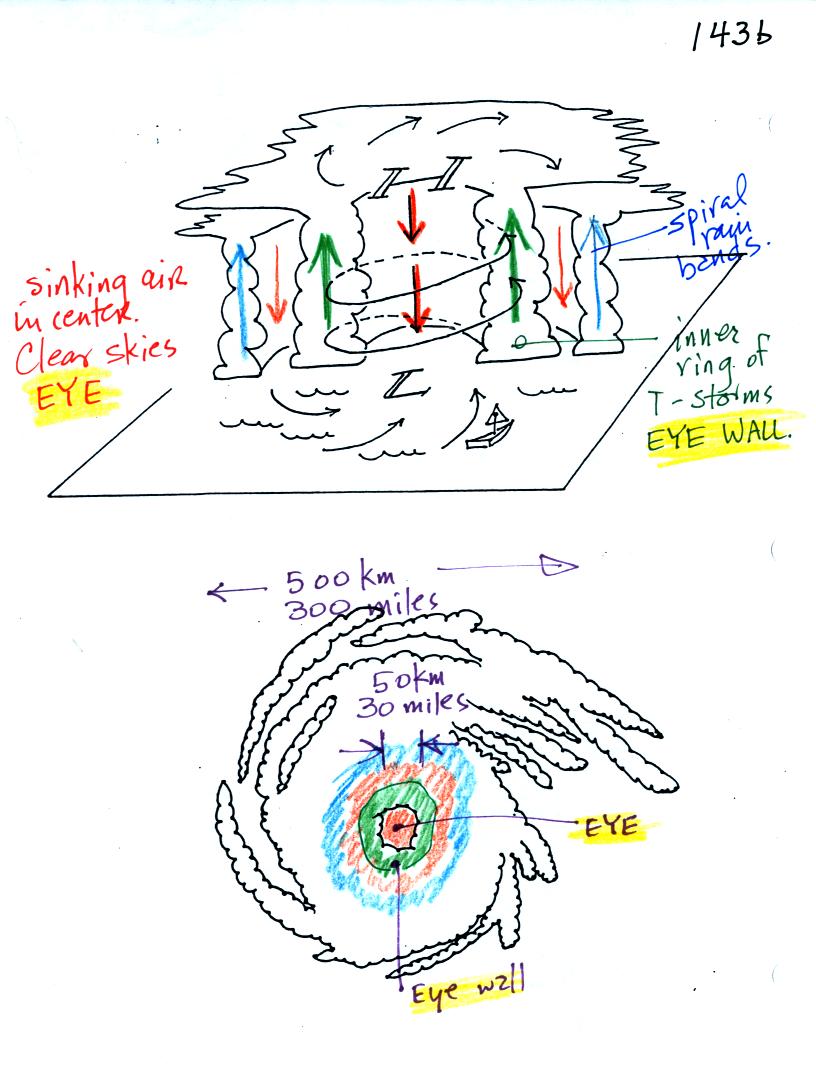 143b
spiral
rain
bands.
sinking air
in center.
Clear skies
EYE
inner
ring of
T-storms
EYE WALL.
500 km
300 miles
50km
30 miles
EYE
Eye wall